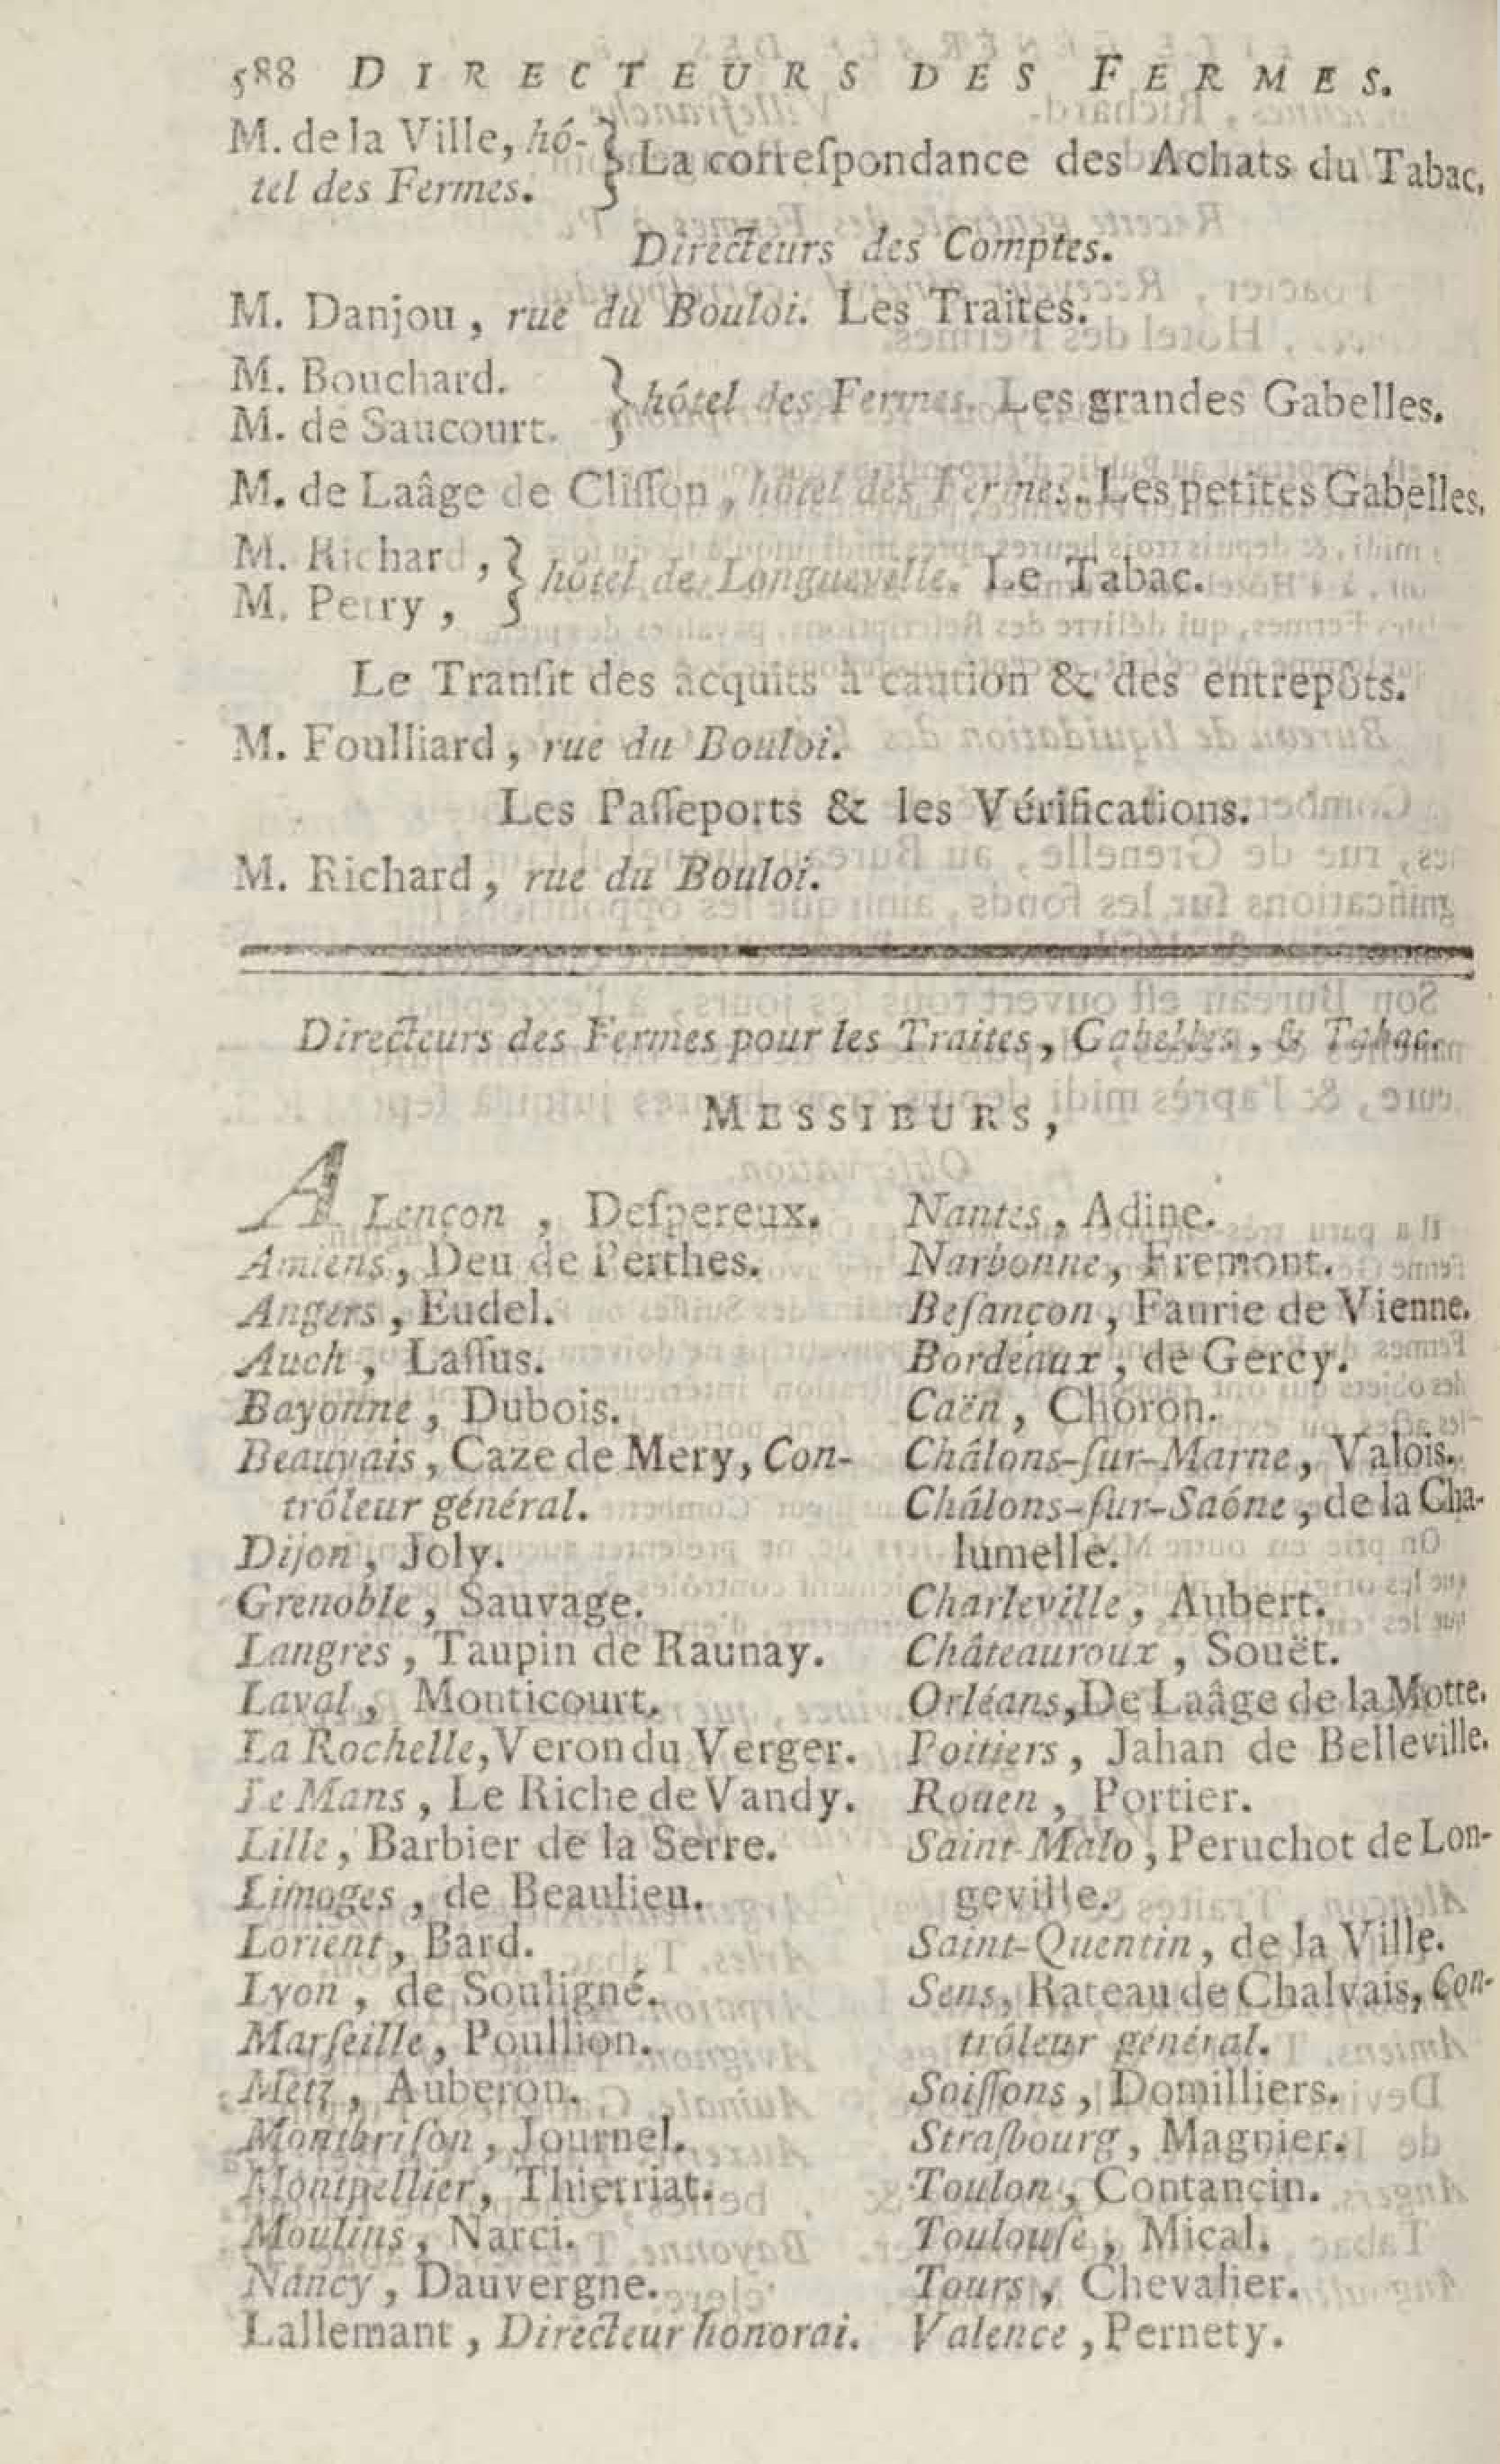 588 DIRECTEURS DES FERMES.
M. de la Ville, hô-
tel des Fermes. } La correſpondance des Achats du Tabac,
Directeurs des Comptes.
M. Danjou, rue du Bouloi. Les Traites.
M. Bouchard.
M. de Saucourt. } hôtel des Fermes. Les grandes Gabelles.
M. de Laâge de Cliſſon, hôtel des Fermes. Les petites Gabelles,
M. Richard,
M. Perry, } hôtel de Longueville. Le Tabac.
Le Tranſit des acquits à caution & des entrepôts.
M. Foulliard, rue du Bouloi.
Les Paſſeports & les Vérifications.
M. Richard, rue du Bouloi.
Directeurs des Fermes pour les Traites, Gabelles, & Tabac.
MESSIEURS,
ALençon, Deſpereux.
Amiens, Deu de Perthes.
Angers, Eudel.
Auch, Laſſus.
Bayonne, Dubois.
Beauvais, Caze de Mery, Con-
trôleur général.
Dijon, Joly.
Grenoble, Sauvage.
Langres, Taupin de Raunay.
Laval, Monticourt.
La Rochelle, Veron du Verger.
Le Mans, Le Riche de Vandy.
Lille, Barbier de la Serre.
Limoges, de Beaulieu.
Lorient, Bard.
Lyon, de Souligné.
Marſeille, Poullion.
Metz, Auberon.
Montbriſon, Journel.
Montpellier, Thierriat.
Moulins, Narci.
Nancy, Dauvergne.
Lallemant, Directeur honorai.
Nantes, Adine.
Narbonne, Fremont.
Beſançon, Faurie de Vienne.
Bordeaux, de Gercy.
Caën, Choron.
Châlons-ſur-Marne, Valois.
Châlons-ſur-Saône, de la Cha-
lumelle.
Charleville, Aubert.
Châteauroux, Souët.
Orléans, De Laâge de la Motte.
Poitiers, Jahan de Belleville.
Rouen, Portier.
Saint-Malo, Peruchot de Lon-
geville.
Saint-Quentin, de la Ville.
Sens, Rateau de Chalvais, Con-
trôleur général.
Soiſſons, Domilliers.
Straſbourg, Magnier.
Toulon, Contancin.
Toulouſe, Mical.
Tours, Chevalier.
Valence, Pernety.